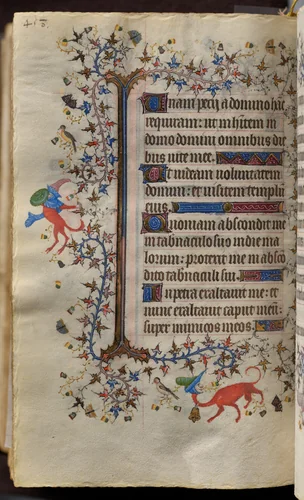 Unam pecij a domino hāc
requiram: ut in hītem in
domo domini omnibus die
bus uite mee.
Et uideam uoluntatem
domini: et uisitem templū
eius.
Quoniam abscondit me
in tabnaculo suo in die ma
lorum: protexit me in absco
dito tabnaculi sui.
In petra exaltauit me: et
nunc exaltauit caput meū
super inimicos meos.